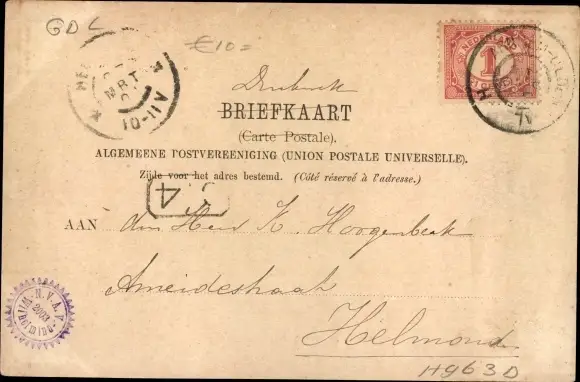 GDL
€10=
NEDERLAND
1
MRT
10-11V
Drukwerk
BRIEFKAART
(Carte Postale).
ALGEMEENE POSTVEREENIGING (UNION POSTALE UNIVERSELLE).
Zijde voor het adres bestemd. (Côté réservé à l'adresse.)
4
AAN den Heer K. Hoogenbeek
Ameidestraat
Helmond
N.V.A.P.
2003
H963D